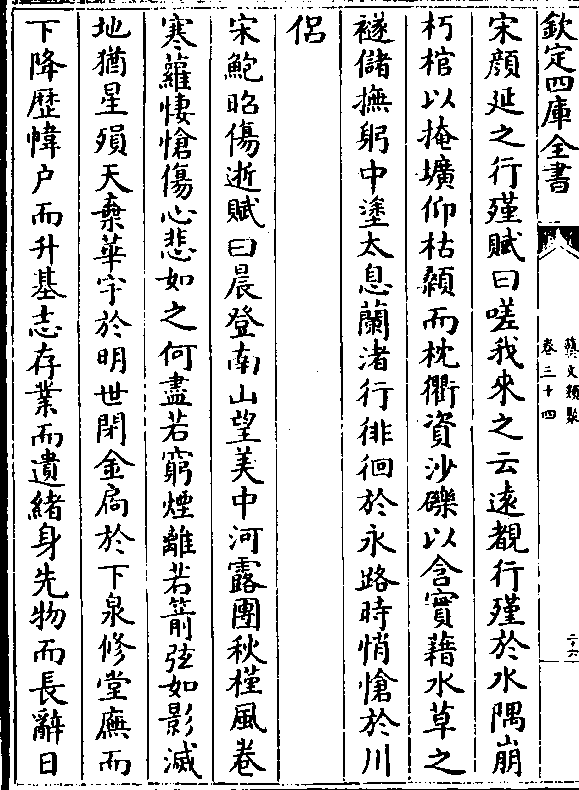 欽定四庫全書
藝文類聚
卷三十四
二十六
宋顔延之行殣賦曰嗟我來之云遠覩行殣於水隅崩
朽棺以掩壙仰枯顙而枕衢資沙礫以含實藉水草之
襚儲撫躬中塗太息蘭渚行徘徊於永路時悄愴於川
侣
宋鮑昭傷逝賦曰晨登南山望美中河露團秋槿風卷
寒蘿悽愴傷心悲如之何盡若窮煙離若箭弦如影滅
地猶星殞天棄華宇於明世閉金扃於下泉修堂廡而
下降歴幃户而升基志存業而遺緒身先物而長辭日